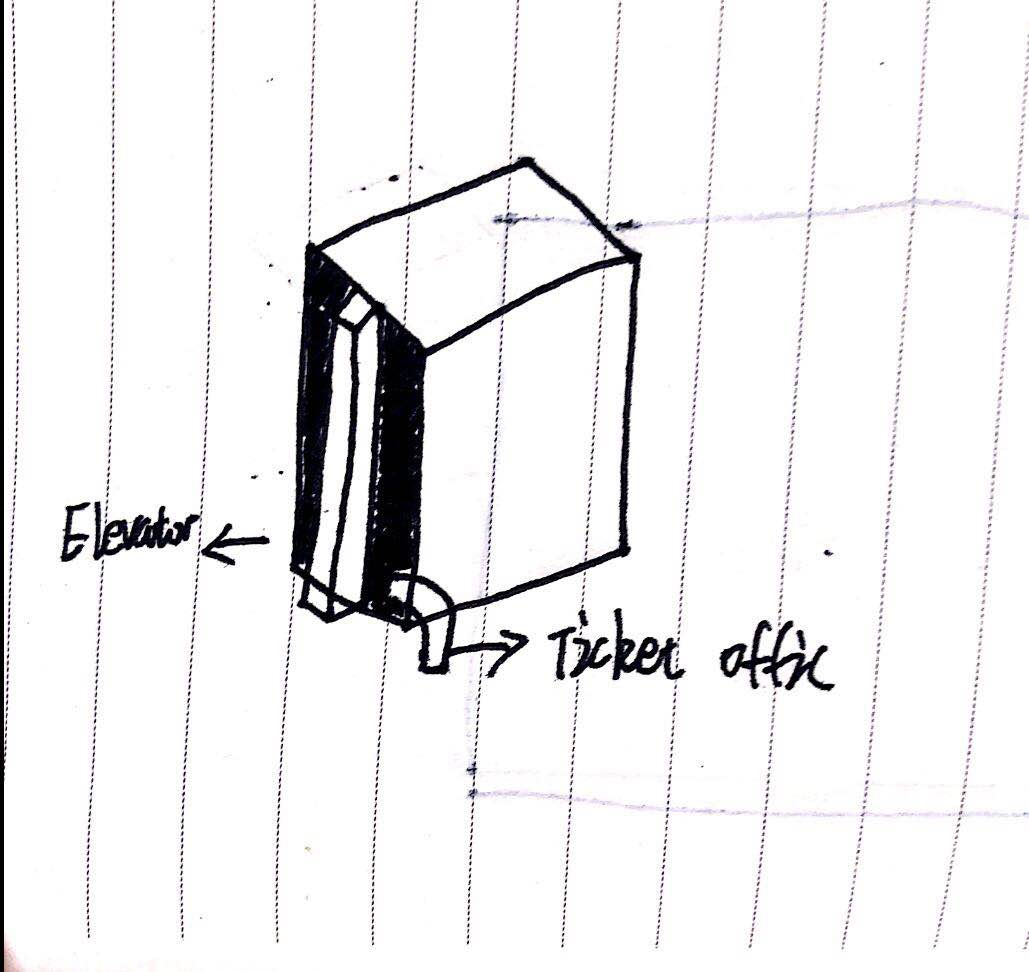 Elevator
Ticket offic